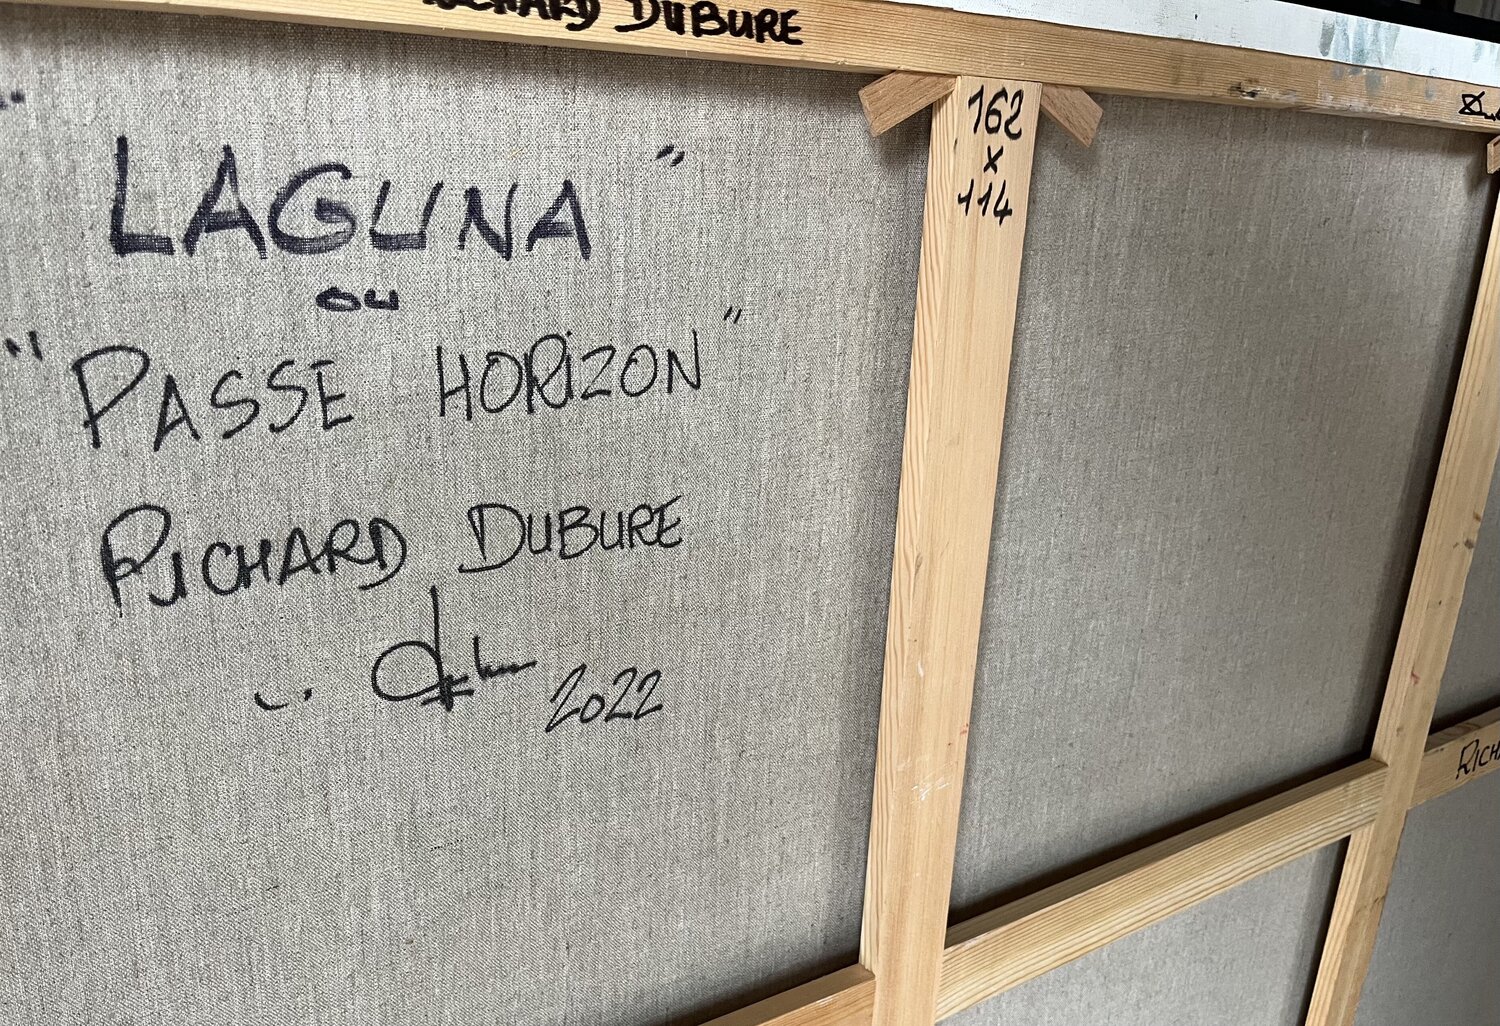 RICHARD DUBURE
"LAGUNA"
ou
"PASSE HORIZON"
RICHARD DUBURE
2022
162
x
114